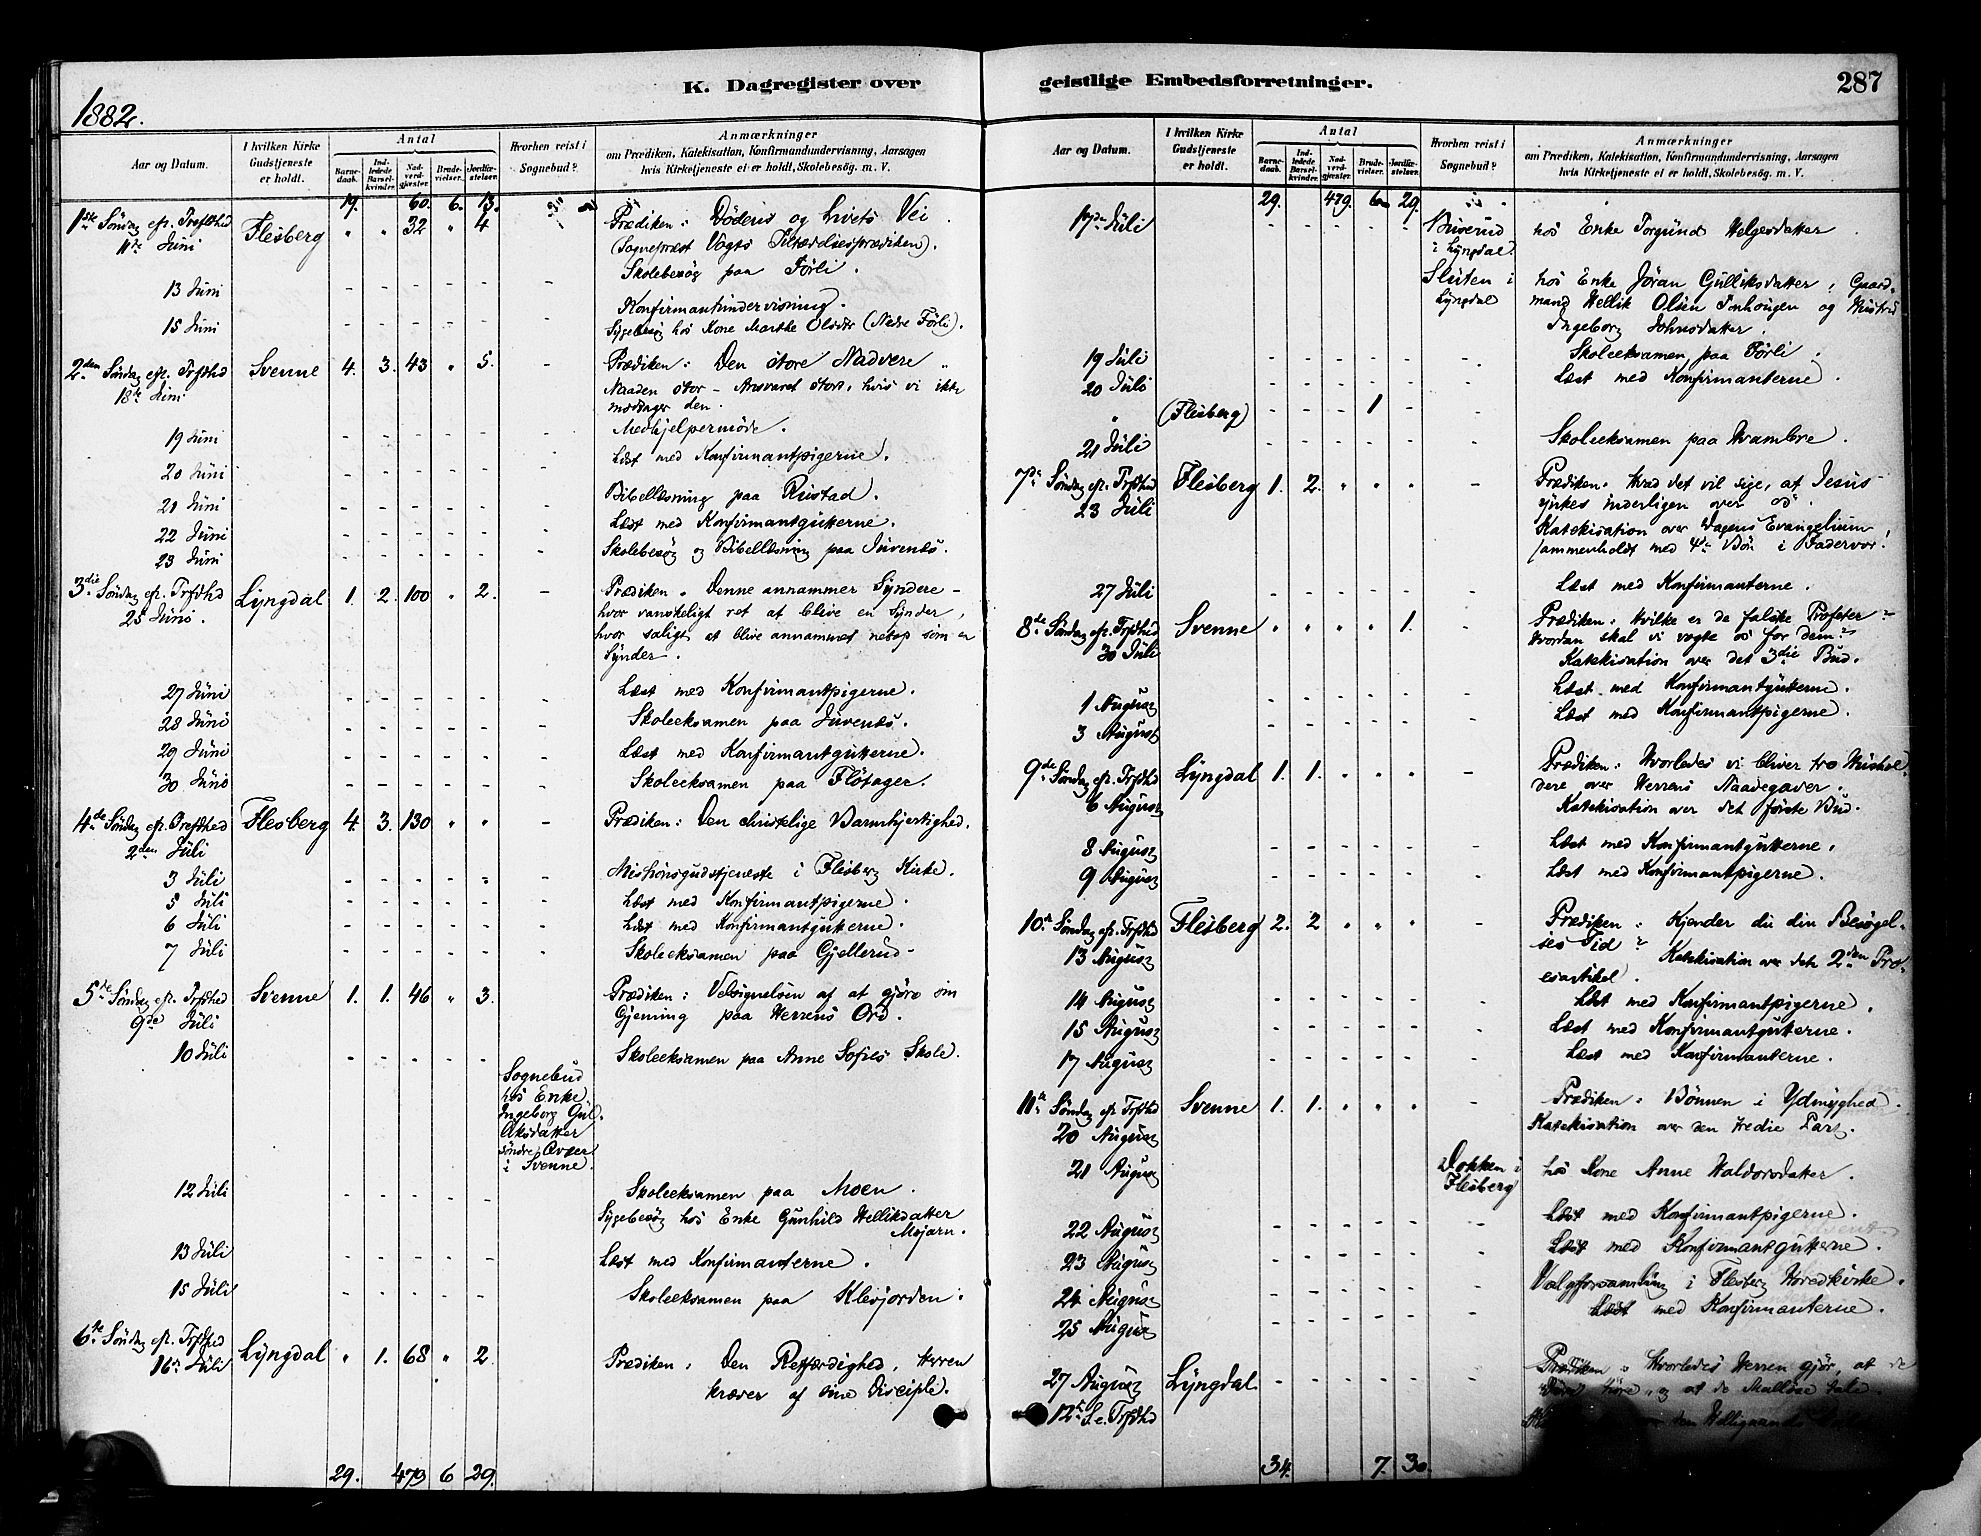 K. Dagregister over
1882.
Aar og Datum.
I hvilken Kirke Gudstjeneste er holdt.
Antal
Barnedaab.
Indledede Barselkvinder.
Nadverdgjester.
Brudevielser.
Jordfæstelser.
Hvorhen reist i Sognebud?
Anmærkninger
om Prædiken, Katekisation, Konfirmandundervisning, Aarsagen
hvis Kirketjeneste ei er holdt, Skolebesøg. m. V.
19. 60. 6. 13.
1ste Søndag eft. Trefdhd Flesberg " " 32 " 4 - Prædiken: Dødens og Livets Vei
11te Juni (Sognepræst Vogts Tiltrædelsesprædiken).
Skolebesøg paa Førli.
13 Juni - - - - - - Konfirmantundervisning.
15 Juni - - - - - - Sygebesøg hos Kone Marthe Olsdtr (Nedre Førli).
2den Søndag eft. Trefdhd Svenne 4. 3. 43 " 5. - Prædiken: Den store Nadvere "
18de Juni Naaden stor - Ansvaret stort, hvis vi ikke
modtager den.
Medhjelpermøde.
19 Juni - - - - - - Læst med Konfirmantpigerne.
20 Juni - - - - -
21 Juni - - - - - - Bibellæsning paa Rustad.
22 Juni - - - - - - Læst med Konfirmantgutterne.
23 Juni - - - - - - Skolebesøg og Bibellæsning paa Juvenes.
3die Søndag eft. Trefdhd Lyngdal 1. 2. 100 " 2. - Prædiken " Denne annammer Syndere -
25 Juni. hvor vanskeligt ret at blive en Synder,
hvor saligt at blive annammet netop som en
Synder.
27 Juni - - - - - - Læst med Konfirmantpigerne.
28 Juni - - - - - - Skoleeksamen paa Juvenes.
29 Juni - - - - - - Læst med Konfirmantgutterne.
30 Juni - - - - - - Skoleeksamen paa Fløtager.
4de Søndag eft. Trefdhed Flesberg 4. 3. 130 " " - Prædiken: Den christelige Barmhjertighed.
2den Juli
3 Juli - - - - - - Missionsgudstjeneste i Flesberg Kirke.
5 Juli - - - - - - Læst med Konfirmantpigerne.
6 Juli - - - - - - Læst med Konfirmantgutterne.
7 Juli - - - - - - Skoleeksamen paa Gjellerud -
5te Søndag eft. Trefdhd Svenne 1. 1. 46 " 3. Prædiken: Velsignelsen af at gjøre sin
9de Juli Gjerning paa Herrens Ord.
10 Juli - - - - - Skoleeksamen paa Anne Sofies Skole.
Sognebud
hos Enke
Ingeborg Gul.
i Svenne.
12 Juli - - - - - Skoleeksamen paa Moen.
Sygebesøg hos Enke Gunhild Helliksdatter
13 Juli - - - - - Læst med Konfirmanterne.
15 Juli - - - - - Skoleeksamen paa Klevjorden.
6te Søndag eft. Trefdhd Lyngdal " 1. 68 " 2. Prædiken: Den Retfærdighed, Herren
16de Juli kræver af sine Disciple.
29. 479 6 29.
geistlige Embedsforretninger.
287
Aar og Datum.
I hvilken Kirke Gudstjeneste er holdt.
Antal
Barnedaab.
Indledede Barselkvinder.
Nadverdgjester.
Brudevielser.
Jordfæstelser.
Hvorhen reist i Sognebud?
Anmærkninger
om Prædiken, Katekisation, Konfirmandundervisning, Aarsagen
hvis Kirketjeneste ei er holdt, Skolebesøg. m. V.
29. 479. 6 29.
17de Juli - - - - - Buserud hos Enke Torgund Helgesdatter
i Lyngdal
Sluten i hos Enke Jøran Gulliksdatter, Gaard-
Lyngdal mand Hellik Olsen og Hustru
Ingeborg Johnsdatter.
19 Juli - - - - - - Skoleeksamen paa Førli.
20 Juli - - - - - - Læst med Konfirmanterne.
" (Flesberg) - - - 1 - -
21 Juli - - - - - - Skoleeksamen paa Strambre.
7de Søndag eft. Trefdhd Flesberg 1. 2. " " " - Prædiken. Hvad det vil sige, at Jesus
23 Juli ynkes inderligen over os.
Katekisation over Dagens Evangelium
sammenholdt med 4de Bøn i Fadervor.
27 Juli - - - - - - Læst med Konfirmanterne.
8de Søndag eft. Trefdhd Svenne " " " " 1. - Prædiken: Hvilke er de falske Profeter?
30 Juli Hvordan skal vi vogte os for dem?
Katekisation over det 3die Bud.
1 August - - - - - - Læst med Konfirmantgutterne.
3 August - - - - - - Læst med Konfirmantpigerne.
9de Søndag eft. Trefdhd Lyngdal 1. 1. " " " - Prædiken: Hvorledes vi bliver tro Hushol-
6 August dere over Herrens Naadegaver.
Katekisation over det første Bud.
8 August - - - - - - Læst med Konfirmantgutterne.
9 August - - - - - - Læst med Konfirmantpigerne.
10de Søndag eft. Trefdhd Flesberg 2. 2 " " " - Prædiken: Kjender du din Besøgel-
13 August ses Tid? Katekisation over den 2den Tro-
esartikel.
14 August - - - - - - Læst med Konfirmantpigerne.
15 August - - - - - - Læst med Konfirmantgutterne.
17 August - - - - - - Læst med Konfirmanterne.
11te Søndag eft. Trefdhd Svenne 1. 1. " " " - Prædiken: Bønnen i Ydmyghed.
20 August Katekisation over den tredie Part.
21 August Dokken i hos Kone Anne Halvorsdatter.
Flesberg
22 August - - - - - - Læst med Konfirmantpigerne.
23 August - - - - - - Læst med Konfirmantgutterne.
24 August - - - - - - Valgforsamling i Flesberg Hovedkirke.
25 August - - - - - - Læst med Konfirmanterne.
27 August Lyngdal - - - - - - Prædiken: Hvorledes Herren gjør, at de
12te S. e. Trefdhd Døve høre, og at de Maalløse tale.
den Helligaands
34. 7. 30